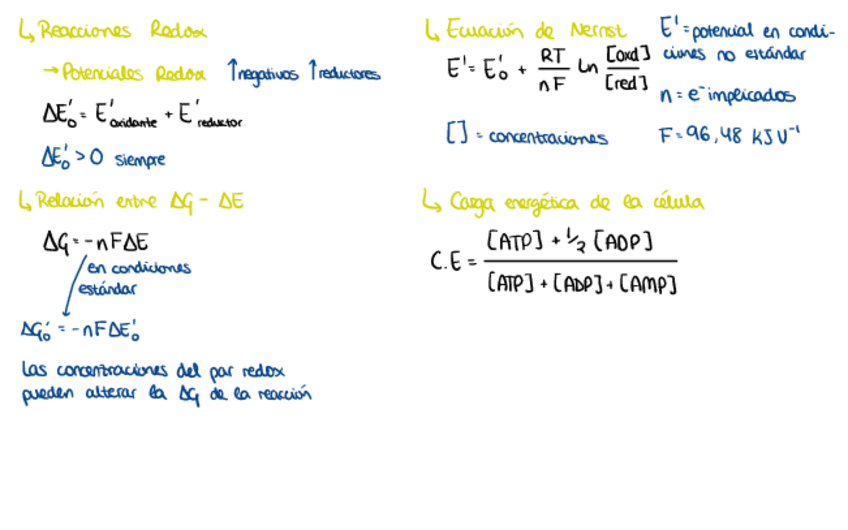 ↳ Reacciones Redox
→ Potenciales Redox ↑negativos ↑reductores
ΔE₀' = E'oxidante + E'reductor
ΔE₀' > 0 siempre
↳ Relación entre ΔG - ΔE
ΔG = -nFΔE
en condiciones
estándar
ΔG₀' = -nFΔE₀'
Las concentraciones del par redox
pueden alterar la ΔG de la reacción
↳ Ecuación de Nernst
E' = E₀' + RT/nF Ln [oxd]/[red]
E' = potencial en condi-
ciones no estándar
n = e⁻ implicados
[] = concentraciones
F = 96,48 KJV⁻¹
↳ Carga energética de la célula
C.E = [ATP] + 1/2 [ADP] / [ATP] + [ADP] + [AMP]